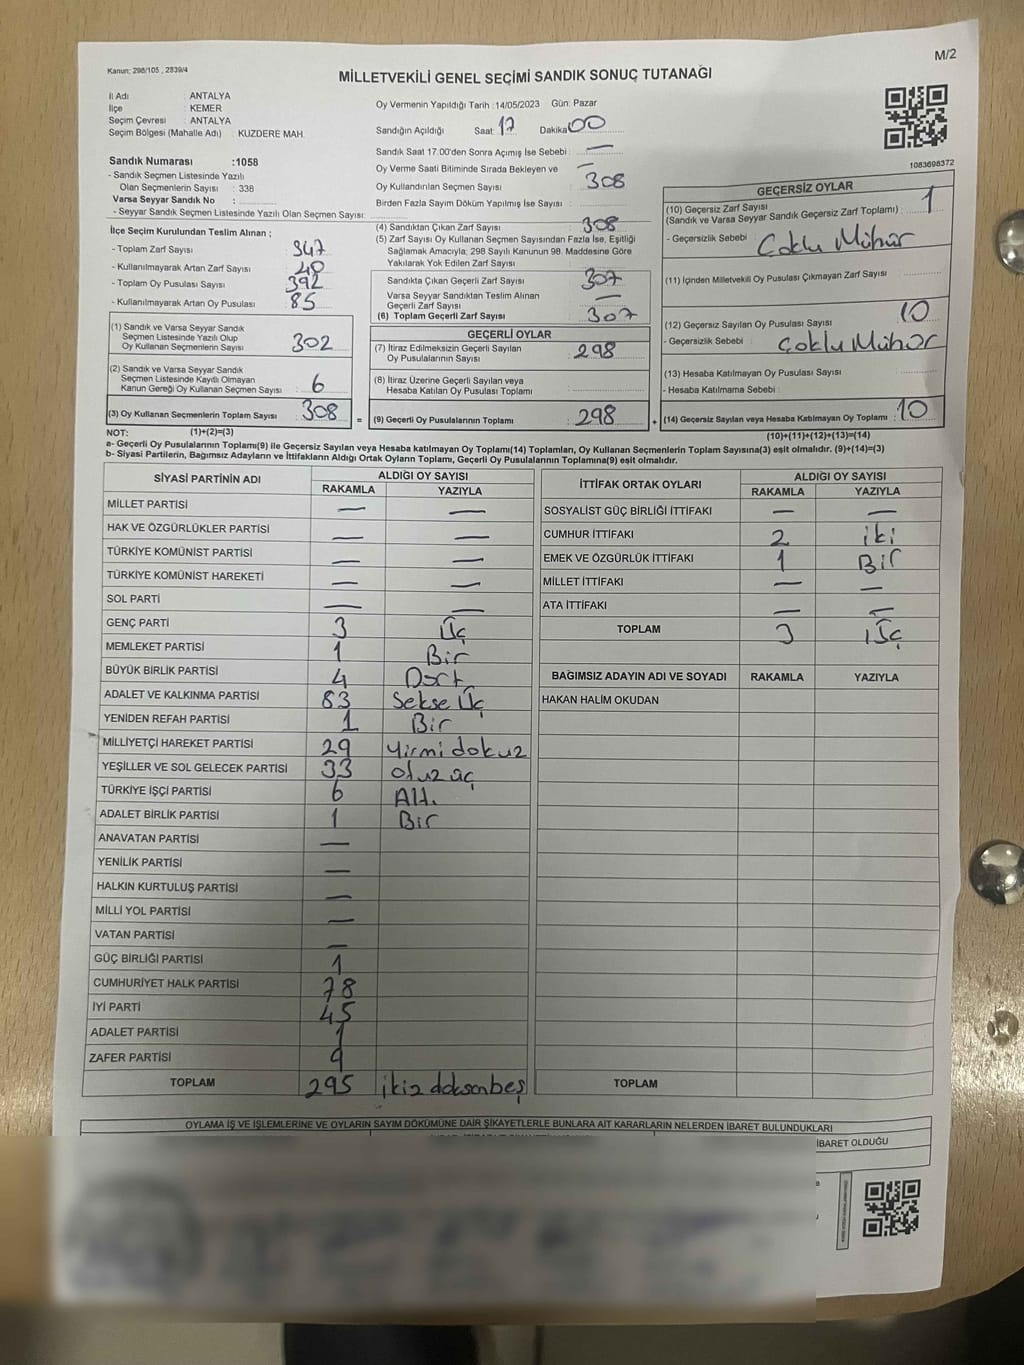 M/2
Kanun: 298/105 , 2839/4
MİLLETVEKİLİ GENEL SEÇİMİ SANDIK SONUÇ TUTANAĞI
İl Adı : ANTALYA
İlçe : KEMER
Seçim Çevresi : ANTALYA
Seçim Bölgesi (Mahalle Adı) : KUZDERE MAH.
Sandık Numarası :1058
- Sandık Seçmen Listesinde Yazılı
Olan Seçmenlerin Sayısı : 338
Varsa Seyyar Sandık No :
- Seyyar Sandık Seçmen Listesinde Yazılı Olan Seçmen Sayısı:
İlçe Seçim Kurulundan Teslim Alınan ;
- Toplam Zarf Sayısı : 347
- Kullanılmayarak Artan Zarf Sayısı : 40
- Toplam Oy Pusulası Sayısı : 392
- Kullanılmayarak Artan Oy Pusulası : 85
(1) Sandık ve Varsa Seyyar Sandık
Seçmen Listesinde Yazılı Olup
Oy Kullanan Seçmenlerin Sayısı : 302
(2) Sandık ve Varsa Seyyar Sandık
Seçmen Listesinde Kayıtlı Olmayan
Kanun Gereği Oy Kullanan Seçmen Sayısı : 6
(3) Oy Kullanan Seçmenlerin Toplam Sayısı : 308
Oy Vermenin Yapıldığı Tarih :14/05/2023 Gün: Pazar
Sandığın Açıldığı Saat: 17 Dakika: 00
Sandık Saat 17.00'den Sonra Açımış İse Sebebi : —
Oy Verme Saati Bitiminde Sırada Bekleyen ve —
Oy Kullandırılan Seçmen Sayısı : 308
Birden Fazla Sayım Döküm Yapılmış İse Sayısı :
(4) Sandıktan Çıkan Zarf Sayısı : 308
(5) Zarf Sayısı Oy Kullanan Seçmen Sayısından Fazla İse, Eşitliği
Sağlamak Amacıyla; 298 Sayılı Kanunun 98. Maddesine Göre
Yakılarak Yok Edilen Zarf Sayısı :
Sandıkta Çıkan Geçerli Zarf Sayısı : 307
Varsa Seyyar Sandıktan Teslim Alınan
Geçerli Zarf Sayısı : —
(6) Toplam Geçerli Zarf Sayısı : 307
GEÇERLİ OYLAR
(7) İtiraz Edilmeksizin Geçerli Sayılan
Oy Pusulalarının Sayısı : 298
(8) İtiraz Üzerine Geçerli Sayılan veya
Hesaba Katılan Oy Pusulası Toplamı :
= (9) Geçerli Oy Pusulalarının Toplamı : 298
1083698372
GEÇERSİZ OYLAR
(10) Geçersiz Zarf Sayısı
(Sandık ve Varsa Seyyar Sandık Geçersiz Zarf Toplamı) : 1
- Geçersizlik Sebebi : Çoklu Mühür
(11) İçinden Milletvekili Oy Pusulası Çıkmayan Zarf Sayısı :
(12) Geçersiz Sayılan Oy Pusulası Sayısı : 10
- Geçersizlik Sebebi : Çoklu Mühür
(13) Hesaba Katılmayan Oy Pusulası Sayısı :
- Hesaba Katılmama Sebebi :
+ (14) Geçersiz Sayılan veya Hesaba Katılmayan Oy Toplamı : 10
NOT: (1)+(2)=(3) (10)+(11)+(12)+(13)=(14)
a- Geçerli Oy Pusulalarının Toplamı(9) ile Geçersiz Sayılan veya Hesaba katılmayan Oy Toplamı(14) Toplamları, Oy Kullanan Seçmenlerin Toplam Sayısına(3) eşit olmalıdır. (9)+(14)=(3)
b- Siyasi Partilerin, Bağımsız Adayların ve İttifakların Aldığı Ortak Oyların Toplamı, Geçerli Oy Pusulalarının Toplamına(9) eşit olmalıdır.
SİYASİ PARTİNİN ADI ALDIĞI OY SAYISI
RAKAMLA YAZIYLA
MİLLET PARTİSİ — —
HAK VE ÖZGÜRLÜKLER PARTİSİ — —
TÜRKİYE KOMÜNİST PARTİSİ — —
TÜRKİYE KOMÜNİST HAREKETİ — —
SOL PARTİ — —
GENÇ PARTİ 3 Üç
MEMLEKET PARTİSİ 1 Bir
BÜYÜK BİRLİK PARTİSİ 4 Dört
ADALET VE KALKINMA PARTİSİ 83 Sekse Üç
YENİDEN REFAH PARTİSİ 1 Bir
MİLLİYETÇİ HAREKET PARTİSİ 29 Yirmi dokuz
YEŞİLLER VE SOL GELECEK PARTİSİ 33 Otuz üç
TÜRKİYE İŞÇİ PARTİSİ 6 Altı
ADALET BİRLİK PARTİSİ 1 Bir
ANAVATAN PARTİSİ —
YENİLİK PARTİSİ —
HALKIN KURTULUŞ PARTİSİ —
MİLLİ YOL PARTİSİ —
VATAN PARTİSİ —
GÜÇ BİRLİĞİ PARTİSİ 1
CUMHURİYET HALK PARTİSİ 78
İYİ PARTİ 45
ADALET PARTİSİ 1
ZAFER PARTİSİ 9
TOPLAM 295 ikiz doksanbeş
İTTİFAK ORTAK OYLARI ALDIĞI OY SAYISI
RAKAMLA YAZIYLA
SOSYALİST GÜÇ BİRLİĞİ İTTİFAKI — —
CUMHUR İTTİFAKI 2 iki
EMEK VE ÖZGÜRLÜK İTTİFAKI 1 Bir
MİLLET İTTİFAKI — —
ATA İTTİFAKI — —
TOPLAM 3 Üç
BAĞIMSIZ ADAYIN ADI VE SOYADI RAKAMLA YAZIYLA
HAKAN HALİM OKUDAN
TOPLAM
OYLAMA İŞ VE İŞLEMLERİNE VE OYLARIN SAYIM DÖKÜMÜNE DAİR ŞİKAYETLERLE BUNLARA AİT KARARLARIN NELERDEN İBARET BULUNDUKLARI
İBARET OLDUĞU